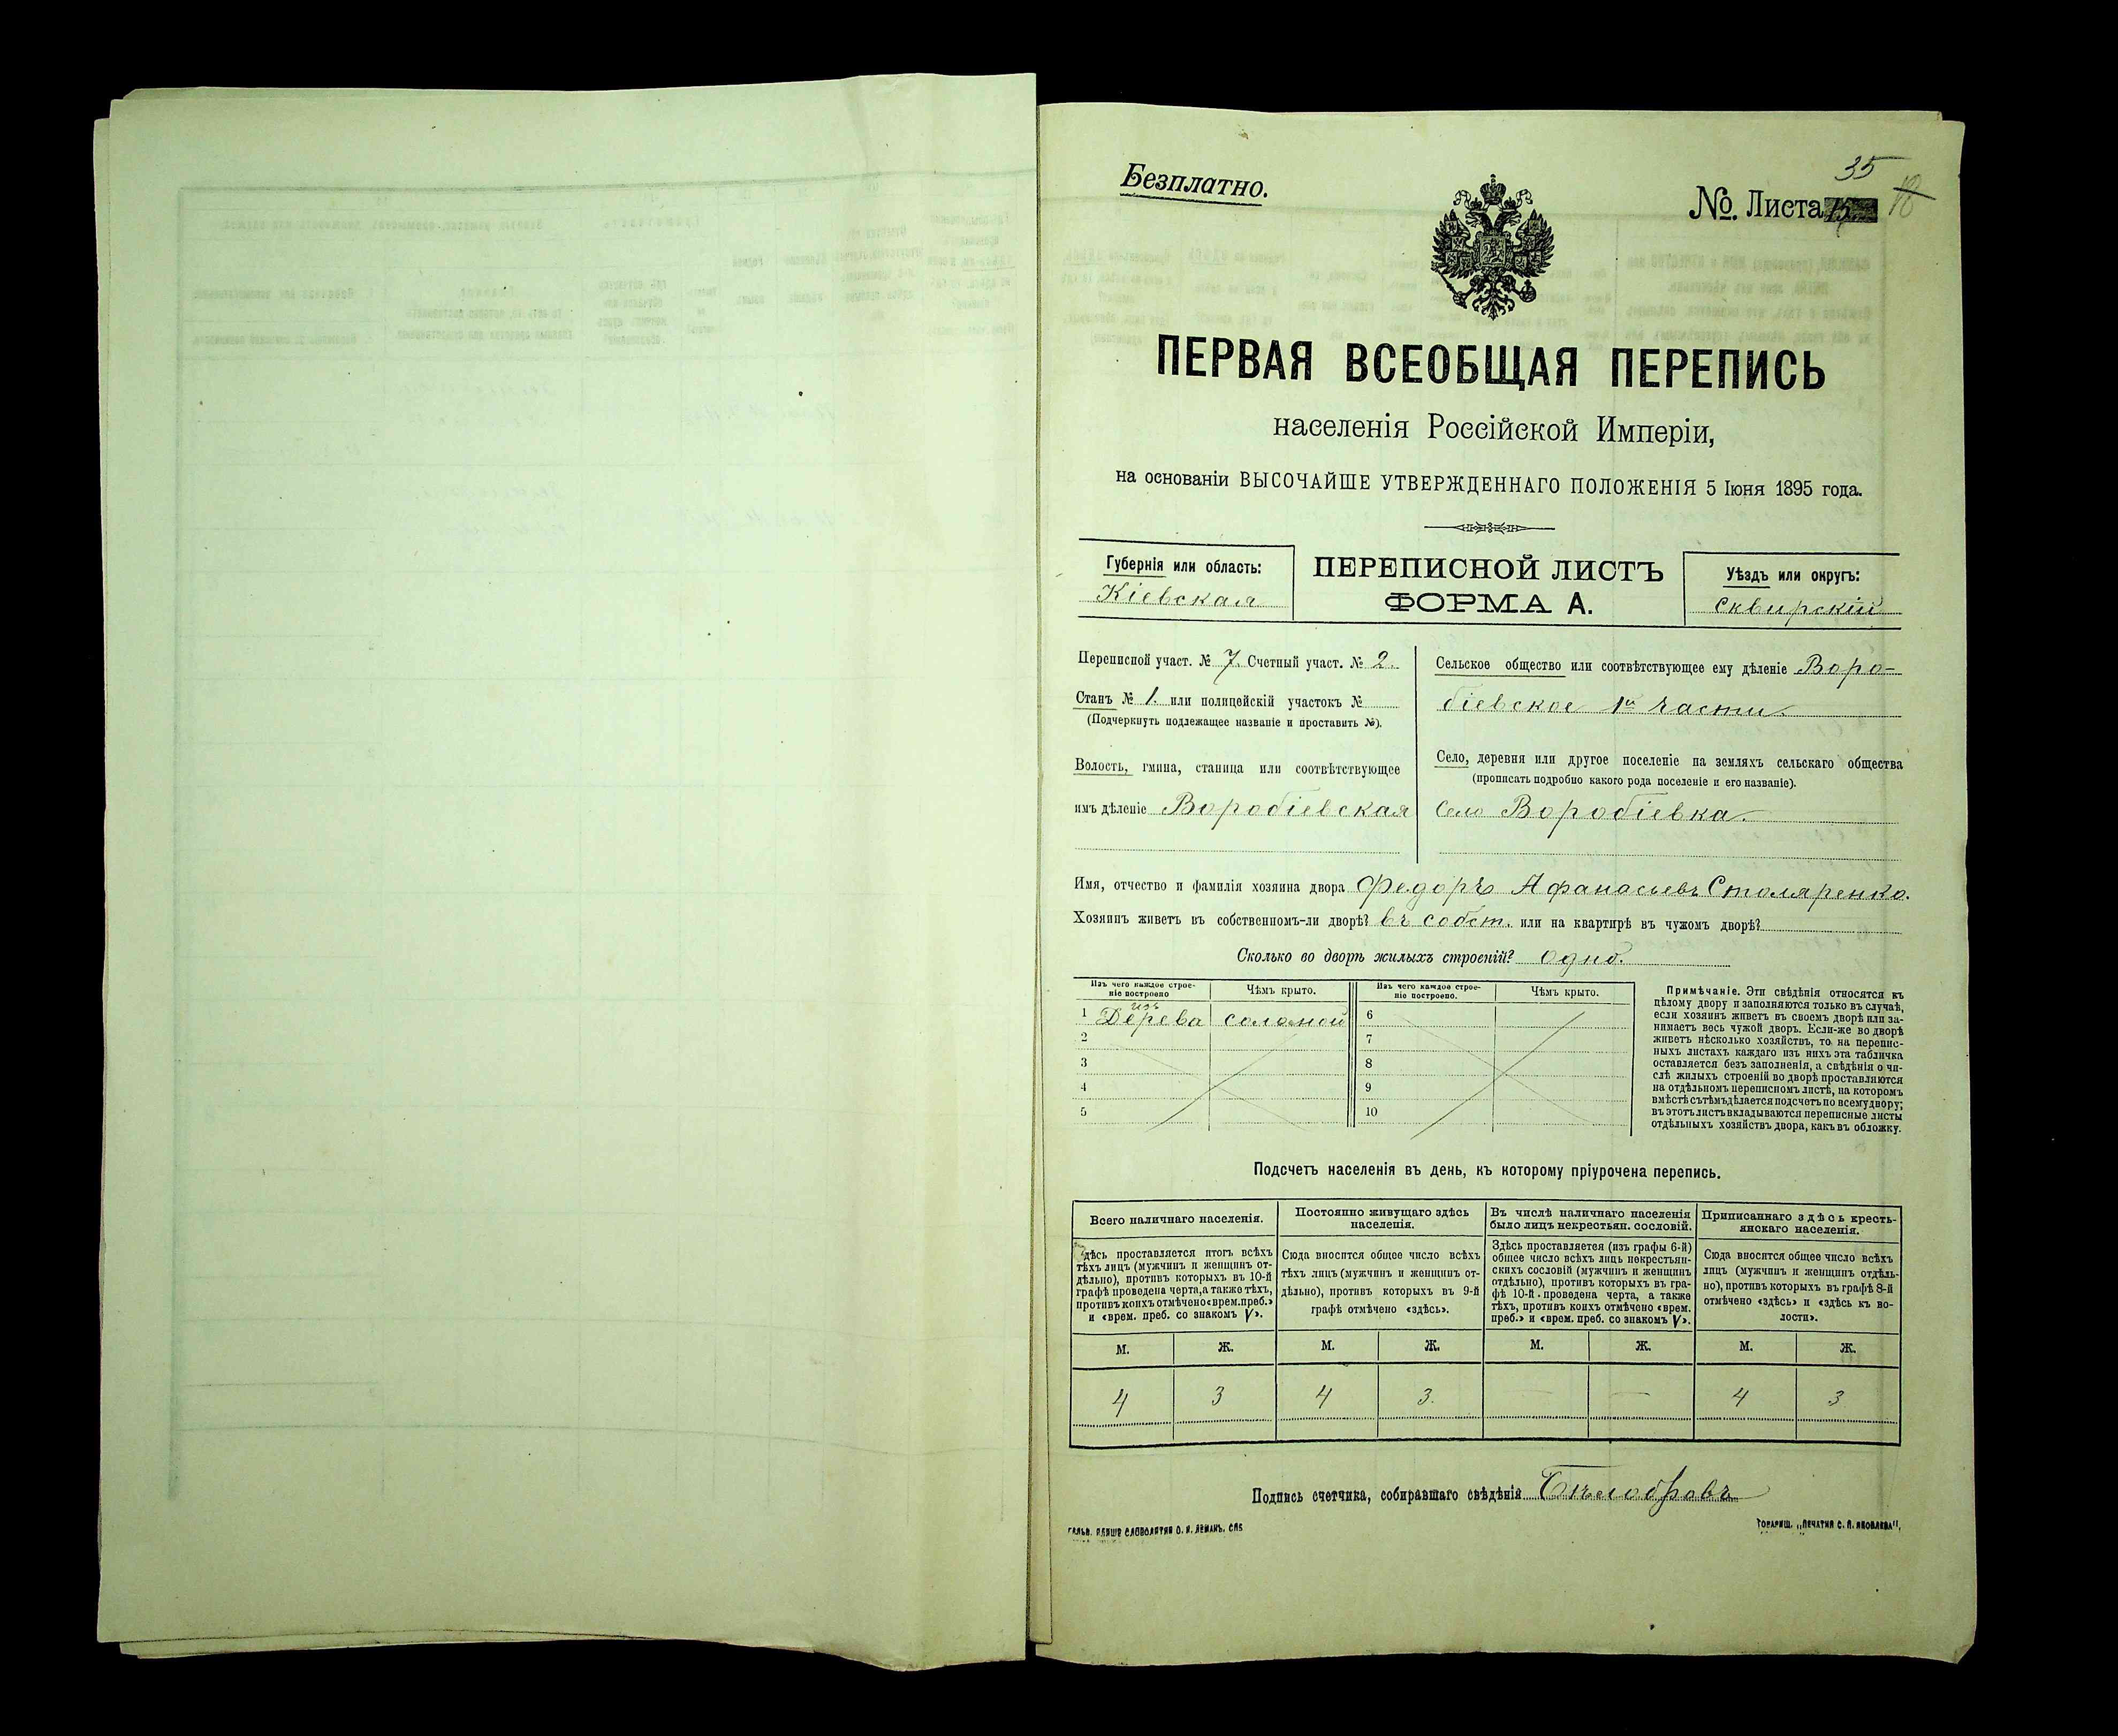 35
Безплатно.
№. Листа 15
ПЕРВАЯ ВСЕОБЩАЯ ПЕРЕПИСЬ
населенія Россійской Имперіи,
на основаніи ВЫСОЧАЙШЕ УТВЕРЖДЕННАГО ПОЛОЖЕНІЯ 5 Іюня 1895 года.
Губернія или область:
Кіевская
ПЕРЕПИСНОЙ ЛИСТЪ
ФОРМА А.
Уѣздъ или округъ:
Сквирскій
Переписной участ. № 7. Счетный участ. № 2.
Станъ № 1. или полицейскій участокъ №
(Подчеркнуть подлежащее названіе и проставить №).
Волость, гмина, станица или соотвѣтствующее
имъ дѣленіе Воробіевская
Сельское общество или соотвѣтствующее ему дѣленіе Воро-
біевское 1й части
Село, деревня или другое поселеніе на земляхъ сельскаго общества
(прописать подробно какого рода поселеніе и его названіе).
село Воробіевка
Имя, отчество и фамилія хозяина двора Федоръ Афанасьевъ Столяренко.
Хозяинъ живетъ въ собственномъ-ли дворѣ? въ собст. или на квартирѣ въ чужомъ дворѣ?
Сколько во дворѣ жилыхъ строеній? одно.
Изъ чего каждое строе-
ніе построено
Чѣмъ крыто.
Изъ чего каждое строе-
ніе построено.
Чѣмъ крыто.
изъ
1 Дерева соломой
2
3
4
5
6
7
8
9
10
Примѣчаніе. Эти свѣдѣнія относятся къ
цѣлому двору и заполняются только въ случаѣ,
если хозяинъ живетъ въ своемъ дворѣ или за-
нимаетъ весь чужой дворъ. Если-же во дворѣ
живетъ нѣсколько хозяйствъ, то на перепис-
ныхъ листахъ каждаго изъ нихъ эта табличка
оставляется безъ заполненія, а свѣдѣнія о чи-
слѣ жилыхъ строеній во дворѣ проставляются
на отдѣльномъ переписномъ листѣ, на которомъ
вмѣстѣ съ тѣмъ дѣлается подсчетъ по всему двору;
въ этотъ листъ вкладываются переписные листы
отдѣльныхъ хозяйствъ двора, какъ въ обложку.
Подсчетъ населенія въ день, къ которому пріурочена перепись.
Всего наличнаго населенія.
Здѣсь проставляется итогъ всѣхъ
тѣхъ лицъ (мужчинъ и женщинъ от-
дѣльно), противъ которыхъ въ 10-й
графѣ проведена черта, а также тѣхъ,
противъ коихъ отмѣчено «врем. преб.»
и «врем. преб. со знакомъ V».
Постоянно живущаго здѣсь
населенія.
Сюда вносится общее число всѣхъ
тѣхъ лицъ (мужчинъ и женщинъ от-
дѣльно), противъ которыхъ въ 9-й
графѣ отмѣчено «здѣсь».
Въ числѣ наличнаго населенія
было лицъ некрестьян. сословій.
Здѣсь проставляется (изъ графы 6-й)
общее число всѣхъ лицъ некрестьян-
скихъ сословій (мужчинъ и женщинъ
отдѣльно), противъ которыхъ въ гра-
фѣ 10-й. проведена черта, а также
тѣхъ, противъ коихъ отмѣчено «врем.
преб.» и «врем. преб. со знакомъ V».
Приписаннаго здѣсь кресть-
янскаго населенія.
Сюда вносится общее число всѣхъ
лицъ (мужчинъ и женщинъ отдѣль-
но), противъ которыхъ въ графѣ 8-й
отмѣчено «здѣсь» и «здѣсь къ во-
лости».
М. Ж. М. Ж. М. Ж. М. Ж.
4 3 4 3. — — 4 3
Подпись счетчика, собиравшаго свѣдѣнія
ГАЛЬВ. КЛИШЕ СЛОВОЛИТНИ О. И. ЛЕМАНЪ. СПБ
ТОВАРИЩ. „ПЕЧАТНЯ С. П. ЯКОВЛЕВА“.